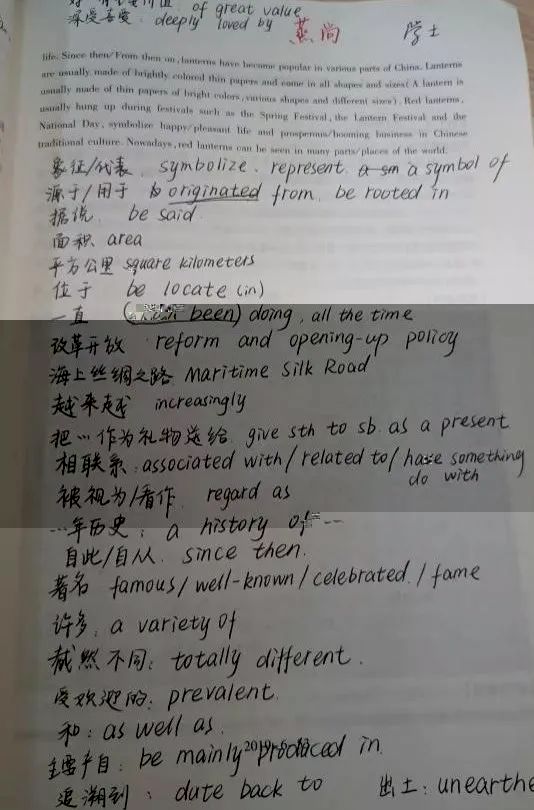 of great value
深受喜爱: deeply loved by 燕尚 学士
life. Since then/From then on, lanterns have become popular in various parts of China. Lanterns
are usually made of brightly colored thin papers and come in all shapes and sizes(A lantern is
usually made of thin papers of bright colors, various shapes and different sizes). Red lanterns,
usually hung up during festivals such as the Spring Festival, the Lantern Festival and the
National Day, symbolize happy/pleasant life and prosperous/booming business in Chinese
traditional culture. Nowadays, red lanterns can be seen in many parts/places of the world.
象征/代表. symbolize. represent. a symbol of
源于/用于 originated from. be rooted in
据说. be said.
面积 area
平方公里 square kilometers
位于 be locate (in)
一直 been) doing, all the time
改革开放 reform and opening-up policy
海上丝绸之路 Maritime Silk Road
越来越 increasingly
把…作为礼物送给. give sth to sb. as a present
相联系: associated with/related to/have something
do with
被视为/看作. regard as
…年历史: a history of ---
自此/自从. since then.
著名 famous/well-known/celebrated./fame
许多: a variety of
截然不同: totally different.
受欢迎的: prevalent.
和: as well as.
主要产自: be mainly produced in
追溯到: date back to 出土: unearthe